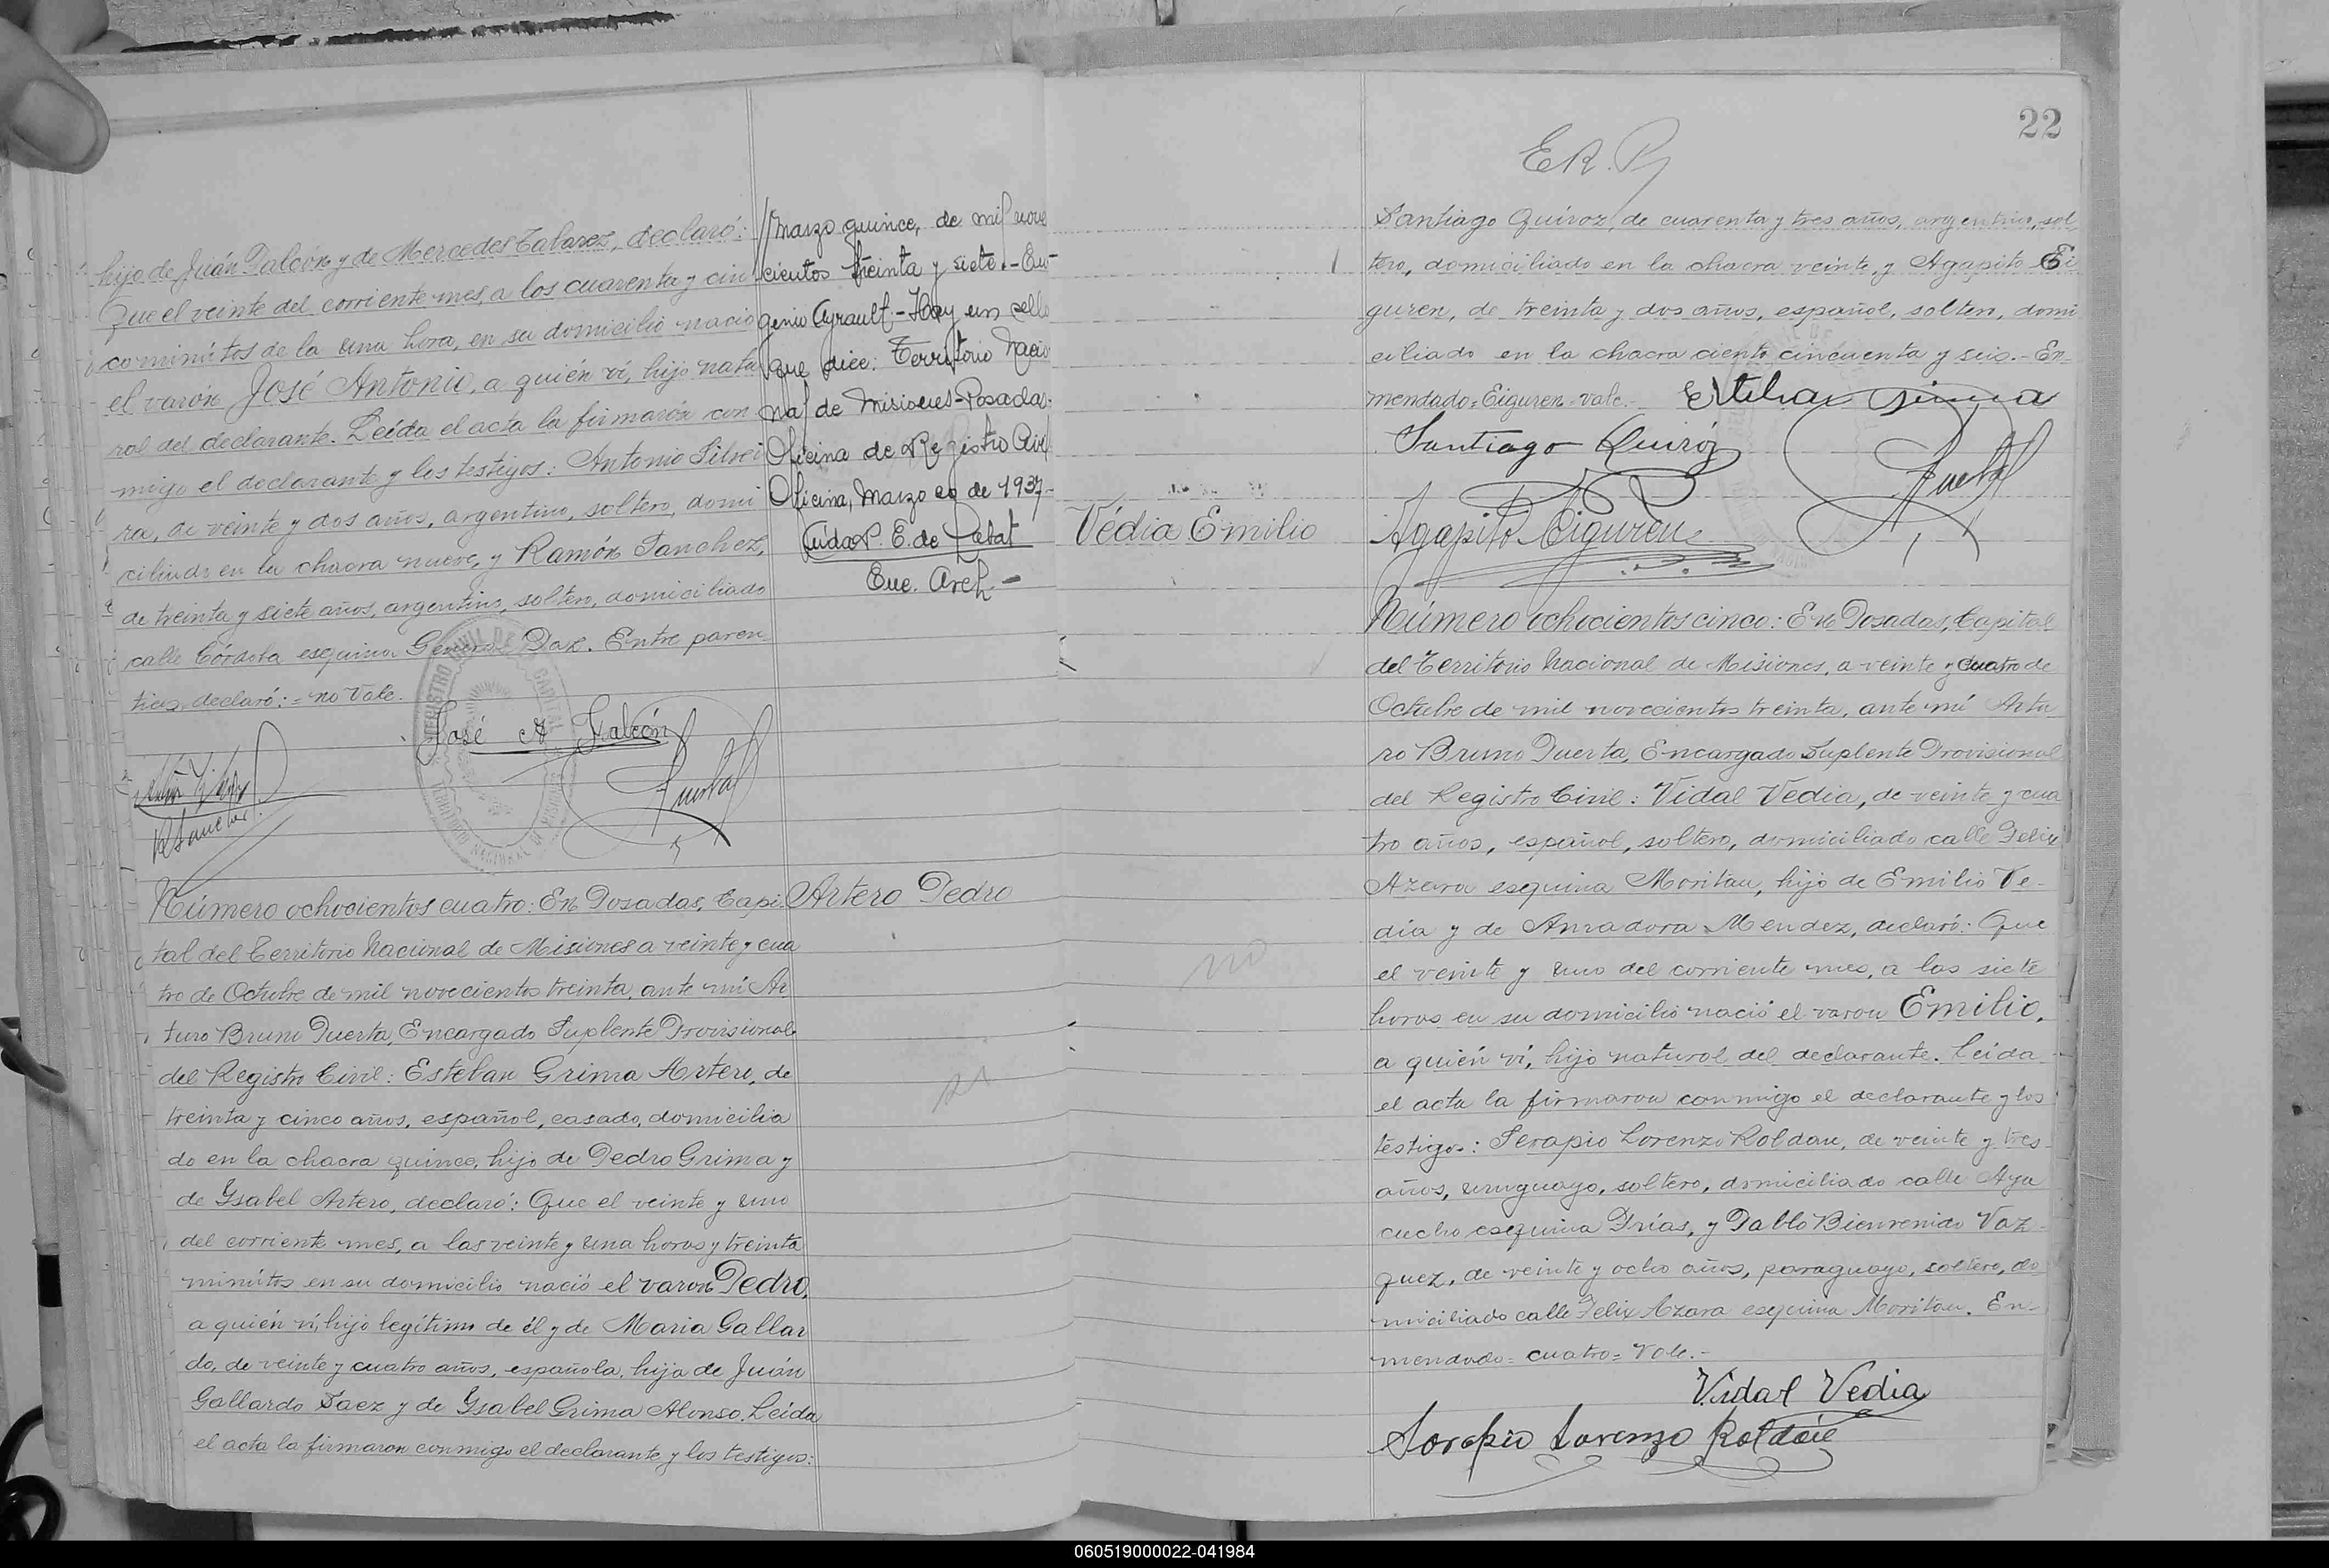 hijo de Juán Falcón y de Mercedes Tabarez, declaró:
Que el veinte del corriente mes, a los cuarenta y cin
co minútos de la una hora, en su domicilio nació
el varón José Antonio, a quién ví, hijo natu
ral del declarante. Leída el acta la firmarón con
migo el declarante y los testigos: Antonio Silvei
ra, de veinte y dos años, argentino, soltero, domi
ciliado en la chacra nueve, y Ramón Sanchez,
de treinta y siete años, argentino, soltero, domiciliado
calle Córdoba esquina General Paz. Entre paren
tisis, declaró: = no vale.
José A Falcón
R Sanchez
Puerta
//marzo quince, de mil nove
cientos treinta y siete.- Eu-
genio Ayrault.- Hay un sello
que dice: Territorio Nacio
nal de Misiones-Posadas-
Oficina de Registro Civil
Oficina, Marzo 29 de 1937-
P. E. de Rebat
Enc. Arch.-
Número ochocientos cuatro: En Posadas, Capi
Artero Pedro
tal del Territorio Nacional de Misiones a veinte y cua
tro de Octubre de mil novecientos treinta, ante mí Ar
turo Bruno Puerta, Encargado Suplente Provisional
del Registro Civil: Esteban Grima Artero, de
treinta y cinco años, español, casado, domicilia
do en la chacra quince, hijo de Pedro Grima y
de Ysabel Artero, declaró: Que el veinte y uno
del corriente mes, a las veinte y una horas y treinta
minútos en su domicilio nació el varon Pedro,
a quién ví, hijo legítimo de él y de Maria Gallar
do, de veinte y cuatro años, española, hija de Juán
Gallardo Saez y de Ysabel Grima Alonso. Leída
el acta la firmaron conmigo el declarante y los testigos:
22
E.R.P
Santiago Quiroz, de cuarenta y tres años, argentino, sol
tero, domiciliado en la chacra veinte, y Agapito Ei
guren, de treinta y dos años, español, soltero, domi
ciliado en la chacra ciento cincuenta y seis.- En
mendado=Eiguren=vale.-
Esteban Grima
Santiago Quiróz
Puerta
Agapito Eiguren
Védia Emilio
Número ochocientos cinco: En Posadas, Capital
del Territorio Nacional de Misiones, a veinte y cuatro de
Octubre de mil novecientos treinta, ante mí Artu
ro Bruno Puerta, Encargado Suplente Provisional
del Registro Civil: Vidal Vedia, de veinte y cua
tro años, español, soltero, domiciliado calle Felix
Azara esquina Moritan, hijo de Emilio Ve-
dia y de Amadora Mendez, declaró: Que
el veinte y uno del corriente mes, a las siete
horas en su domicilio nació el varon Emilio,
a quién ví, hijo natural del declarante. Leída
el acta la firmaron conmigo el declarante y los
testigos: Serapio Lorenzo Roldan, de veinte y tres
años, uruguayo, soltero, domiciliado calle Aya
cucho esquina Frías, y Pablo Bienvenido Vaz
quez, de veinte y ocho años, paraguayo, soltero, do
miciliado calle Felix Azara esquina Moritan. En-
mendado= cuatro= Vale.-
no
Vidal Vedia
Serapio Lorenzo Roldán
060519000022-041984